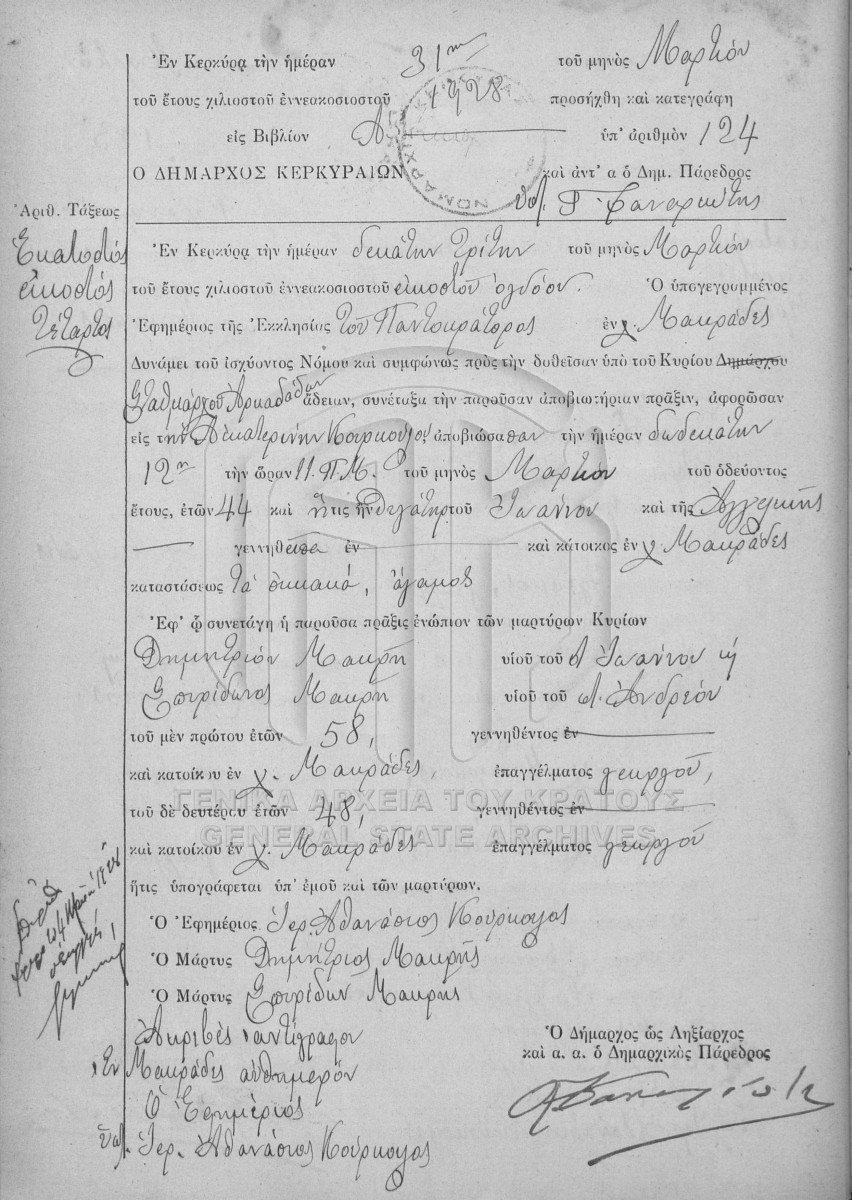 Ἐν Κερκύρᾳ τὴν ἡμέραν 31ην τοῦ μηνὸς Μαρτίου
τοῦ ἔτους χιλιοστοῦ ἐννεακοσιοστοῦ 1928 προσήχθη καὶ κατεγράφη
εἰς Βιβλίον ὑπ' ἀριθμὸν 124
Ο ΔΗΜΑΡΧΟΣ ΚΕΡΚΥΡΑΙΩΝ καὶ ἀντ' α ὁ Δημ. Πάρεδρος
Ἀριθ. Τάξεως
Ἑκατοστός
εἰκοστός
τέταρτος
Ἐν Κερκύρᾳ τὴν ἡμέραν δεκάτην τρίτην τοῦ μηνὸς Μαρτίου
τοῦ ἔτους χιλιοστοῦ ἐννεακοσιοστοῦ εἰκοστοῦ ὀγδόου. Ὁ ὑπογεγραμμένος
Ἐφημέριος τῆς Ἐκκλησίας τοῦ Παντοκράτορος ἐν χ. Μακράδες
Δυνάμει τοῦ ἰσχύοντος Νόμου καὶ συμφώνως πρὸς τὴν δοθεῖσαν ὑπὸ τοῦ Κυρίου Δημάρχου
Σταθμάρχου Ἀρκαδάδων ἄδειαν, συνέταξα τὴν παροῦσαν ἀποβιωτήριαν πρᾶξιν, ἀφορῶσαν
εἰς τὴν Αἰκατερίνην Κούρκουλου ἀποβιώσασαν τὴν ἡμέραν δωδεκάτην
12ην τὴν ὥραν 11 Π.Μ. τοῦ μηνὸς Μαρτίου τοῦ ὁδεύοντος
ἔτους, ἐτῶν 44 καὶ ἥτις ἦν θυγάτηρ τοῦ Ἰωάννου καὶ τῆς Ἀγγελικῆς
γεννηθεῖσα ἐν καὶ κάτοικος ἐν χ. Μακράδες
καταστάσεως τὰ οἰκιακά, ἄγαμος
Ἐφ' ᾧ συνετάγη ἡ παροῦσα πρᾶξις ἐνώπιον τῶν μαρτύρων Κυρίων
Δημητρίου Μακρῆ υἱοῦ τοῦ Ἰωάννου ἢ
Σπυρίδωνος Μακρῆ υἱοῦ τοῦ Ἀνδρέου
τοῦ μὲν πρώτου ἐτῶν 58, γεννηθέντος ἐν
καὶ κατοίκου ἐν χ. Μακράδες, ἐπαγγέλματος γεωργοῦ,
τοῦ δὲ δευτέρου ἐτῶν 48, γεννηθέντος ἐν
ΓΕΝΙΚΑ ΑΡΧΕΙΑ ΤΟΥ ΚΡΑΤΟΥΣ
GENERAL STATE ARCHIVES
καὶ κατοίκου ἐν χ. Μακράδες ἐπαγγέλματος γεωργοῦ
ἥτις ὑπογράφεται ὑπ' ἐμοῦ καὶ τῶν μαρτύρων.
Ὁ Ἐφημέριος Ἱερ. Ἀθανάσιος Κούρκουλος
Ὁ Μάρτυς Δημήτριος Μακρῆς
Ὁ Μάρτυς Σπυρίδων Μακρῆς
Ἀκριβὲς ἀντίγραφον
Ἐν Μακράδες αὐθημερόν
Ὁ Ἐφημέριος
Ἱερ. Ἀθανάσιος Κούρκουλος
Ὁ Δήμαρχος ὡς Ληξίαρχος
καὶ α. α. ὁ Δημαρχικὸς Πάρεδρος